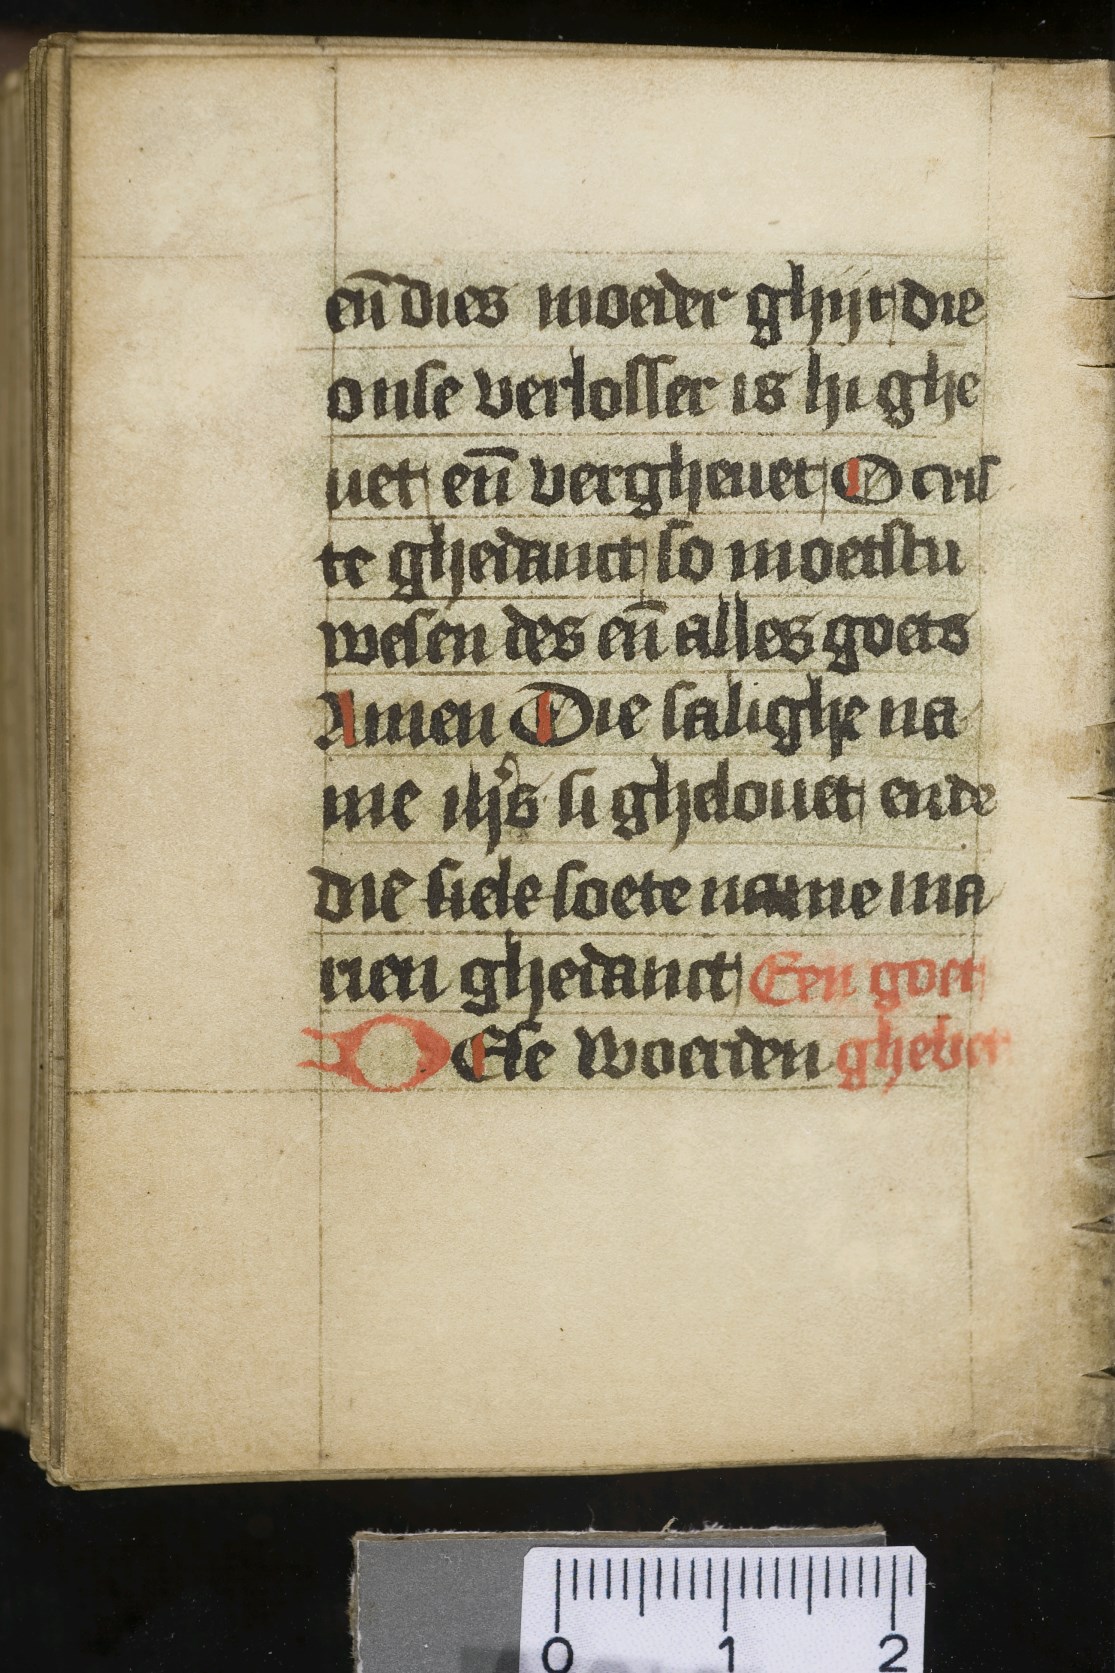 en̄ dies moeder ghijt die
onse verlosser is hi ghe
uet en̄ vergheuet O cris
te ghedanct so moetstu
wesen des en̄ alles goets
Amen Die salighe na
me ihs si ghelouet ende
die siele soete name ma
rien ghedanct Een goet
DEse woerden ghebet
0 1 2